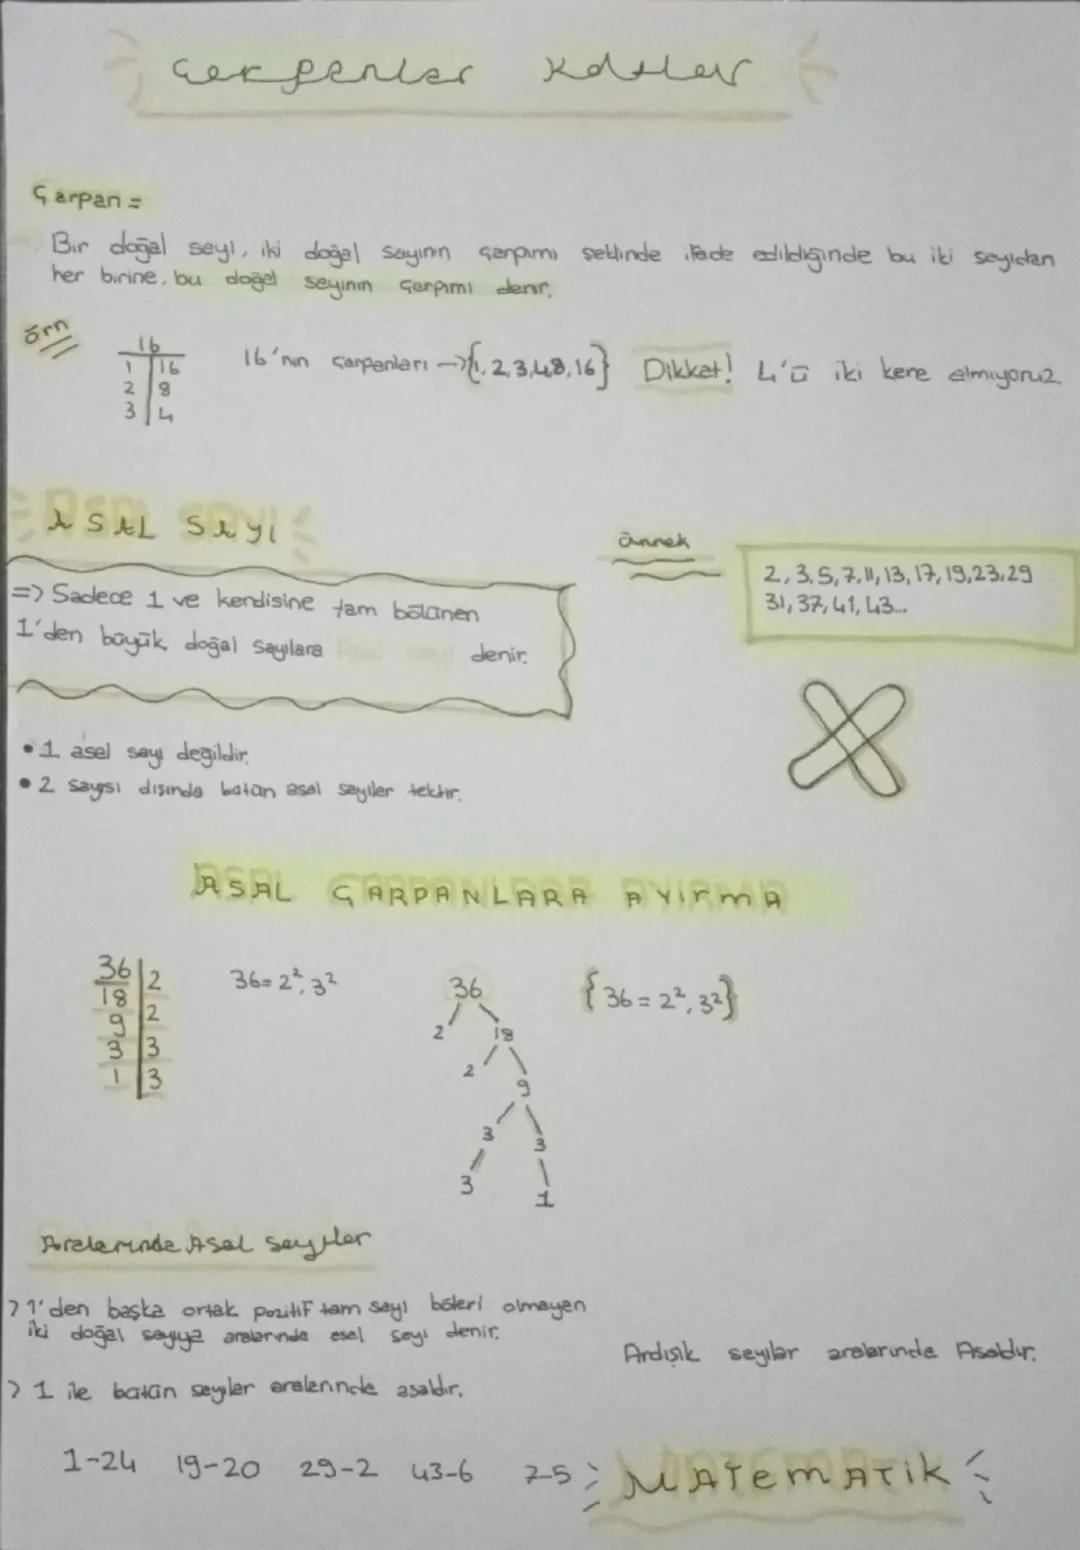 Çarpanlar Katlar
Çarpan =
Bir doğal sayı, iki doğal sayının çarpımı şeklinde ifade edildiğinde bu iki sayıdan
her birine, bu doğal sayının çarpımı denir.
örn
16
1 | 16
2 | 8
3 | 4
16'nın çarpanları → {1, 2, 3, 4, 8, 16} Dikkat! 4'ü iki kere almıyoruz.
ASAL SAYI
=> Sadece 1 ve kendisine tam bölünen
1'den büyük doğal sayılara denir.
örnek
2, 3, 5, 7, 11, 13, 17, 19, 23, 29
31, 37, 41, 43...
• 1 asal sayı değildir.
• 2 sayısı dışında bütün asal sayılar tektir.
ASAL ÇARPANLARA AYIRMA
36 | 2
18 | 2
9 | 3
3 | 3
1
36 = 2², 3²
36
2 18
2 9
3 3
3 1
{36 = 2², 3²}
Aralarında Asal Sayılar
> 1'den başka ortak pozitif tam sayı böleri olmayan
iki doğal sayıya aralarında asal sayı denir.
> 1 ile bütün sayılar aralarında asaldır.
Ardışık sayılar aralarında Asaldır.
1-24 19-20 29-2 43-6 7-5
MATEMATİK